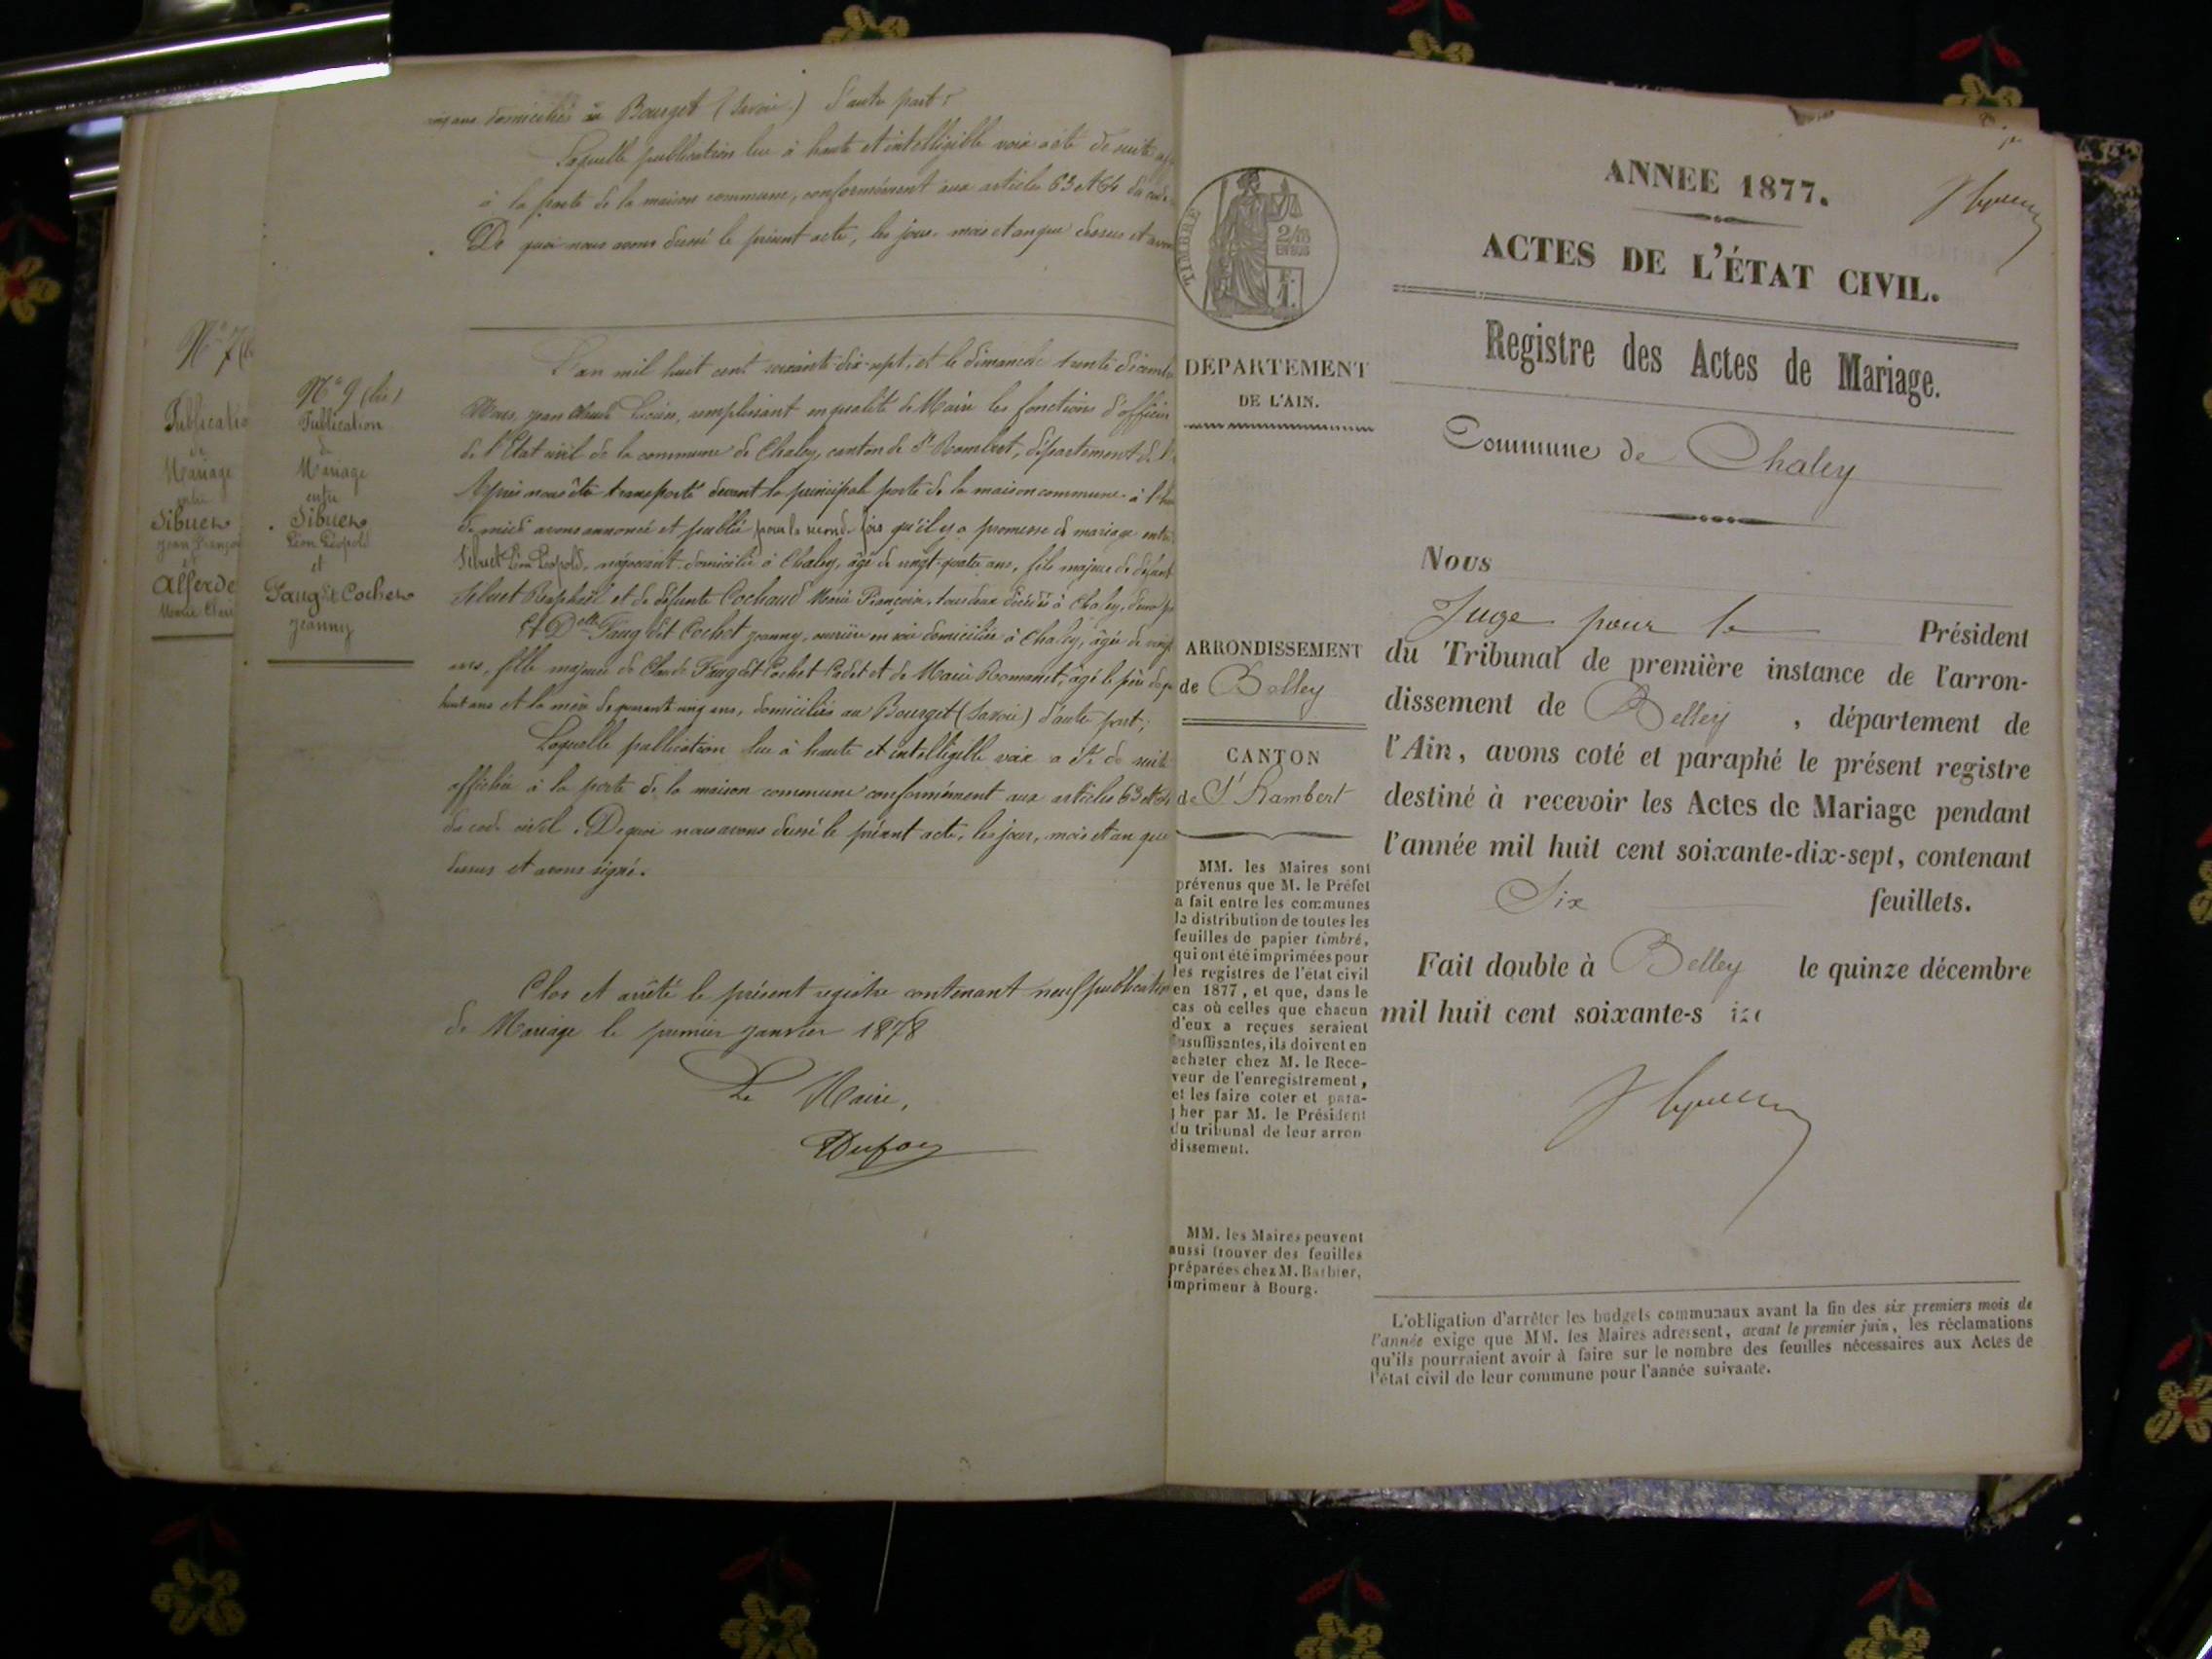 domiciliés au Bourget (Savoie) d'autre part;
Laquelle publication lue à haute et intelligible voix a été de suite
à la porte de la maison commune, conformément aux articles 63 et 64 du code
De quoi nous avons dressé le présent acte, les jour, mois et an que dessus et avons
N° 7
Publication
de
Mariage
entre
Sibuet
Jean François
et
Alferde
Marie
N° 9 (bis)
Publication
de
Mariage
entre
Sibuet
Léon Léopold
et
Faug dit Cochet
Jeanny
L'an mil huit cent soixante-dix-sept, et le dimanche trente décembre
Nous, Jean Claude remplissant en qualité de Maire les fonctions d'officier
de l'Etat civil de la commune de Chaley, canton de St Rambert, département de l'
Après nous être transporté devant la principale porte de la maison commune à l'heure
de midi avons annoncé et publié pour la seconde fois qu'il y a promesse de mariage entre
Sibuet Léon Léopold, négociant domicilié à Chaley, âgé de vingt-quatre ans, fils majeur de défunt
Sibuet Raphaël et de défunte Cochaud Marie Françoise, tous deux décédés à Chaley, d'une part
Et Delle Faug dit Cochet Jeanny, ouvrière en soie domiciliée à Chaley, âgée de vingt
ans, fille majeure de Claude Faug dit Cochet Cadet et de Marie Romanet, âgé le père de
huit ans et la mère de quarante cinq ans, domiciliés au Bourget (Savoie) d'autre part;
Laquelle publication lue à haute et intelligible voix a été de suite
affichée à la porte de la maison commune conformément aux articles 63 et 64
du code civil. De quoi nous avons dressé le présent acte, les jour, mois et an que
dessus et avons signé.
Clos et arrêté le présent registre contenant neuf publications
de Mariage le premier janvier 1878
Le Maire,
TIMBRE
2/10
EN SUS
F.
1.
DÉPARTEMENT
DE L'AIN.
ARRONDISSEMENT
de Belley
CANTON
de St Rambert
MM. les Maires sont
prévenus que M. le Préfet
a fait entre les communes
la distribution de toutes les
feuilles de papier timbré,
qui ont été imprimées pour
les registres de l'état civil
en 1877, et que, dans le
cas où celles que chacun
d'eux a reçues seraient
insuffisantes, ils doivent en
acheter chez M. le Rece-
veur de l'enregistrement,
et les faire coter et para-
pher par M. le Président
du tribunal de leur arron
dissement.
MM. les Maires peuvent
aussi trouver des feuilles
préparées chez M. Barbier,
imprimeur à Bourg.
ANNÉE 1877.
ACTES DE L'ÉTAT CIVIL.
Registre des Actes de Mariage.
Commune de Chaley
Nous
Juge pour le Président
du Tribunal de première instance de l'arron-
dissement de Belley, département de
l'Ain, avons coté et paraphé le présent registre
destiné à recevoir les Actes de Mariage pendant
l'année mil huit cent soixante-dix-sept, contenant
Six feuillets.
Fait double à Belley le quinze décembre
mil huit cent soixante-s
L'obligation d'arrêter les budgets communaux avant la fin des six premiers mois de
l'année exige que MM. les Maires adressent, avant le premier juin, les réclamations
qu'ils pourraient avoir à faire sur le nombre des feuilles nécessaires aux Actes de
l'état civil de leur commune pour l'année suivante.